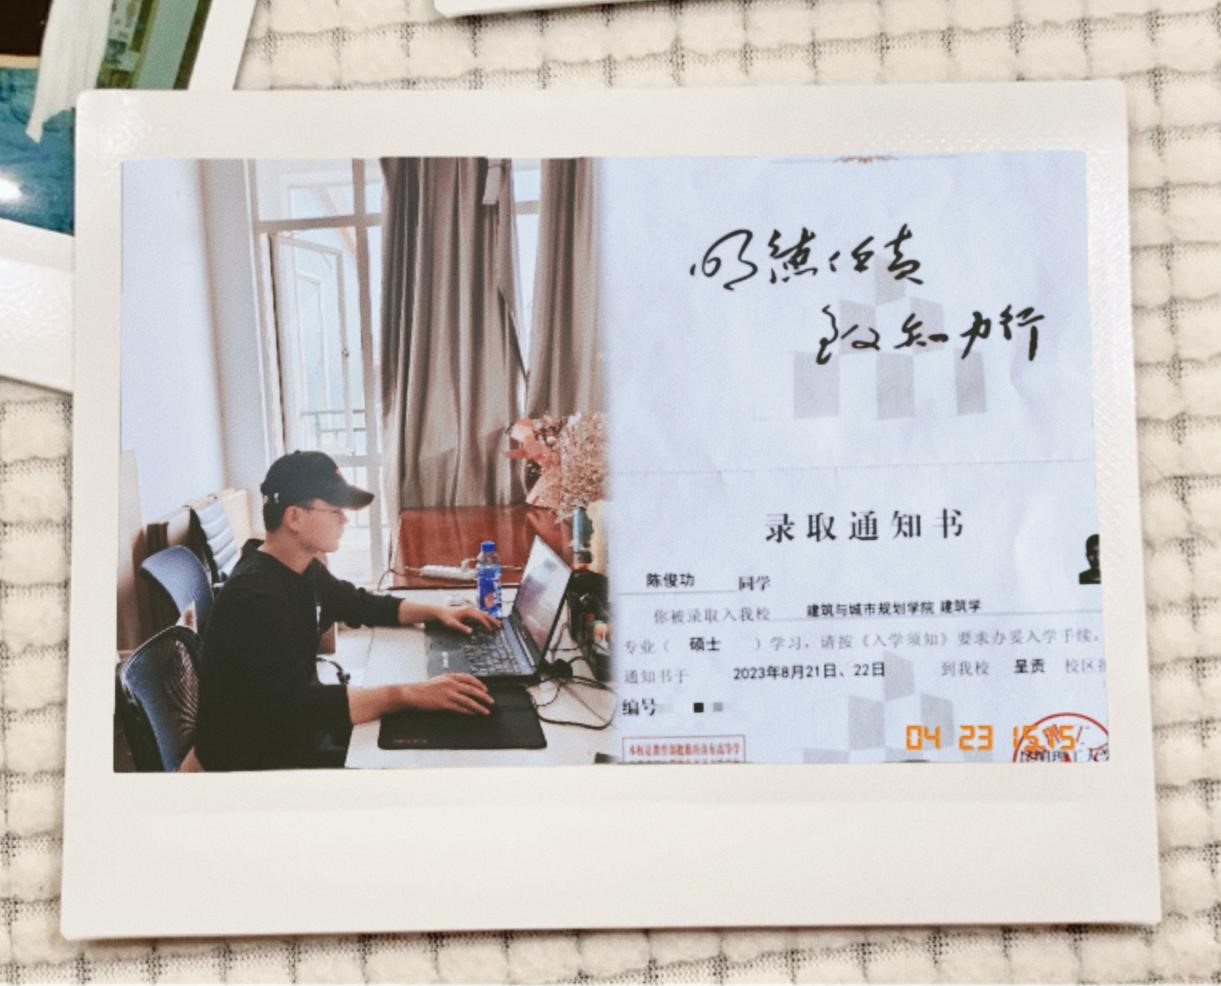 明德任责
致知力行
录取通知书
陈俊功 同学
你被录取入我校 建筑与城市规划学院 建筑学
专业（ 硕士 ）学习，请按《入学须知》要求办妥入学手续，
通知书于 2023年8月21日、22日 到我校 呈贡 校区
编号
本校是教育部批准的具有高等学
04 23